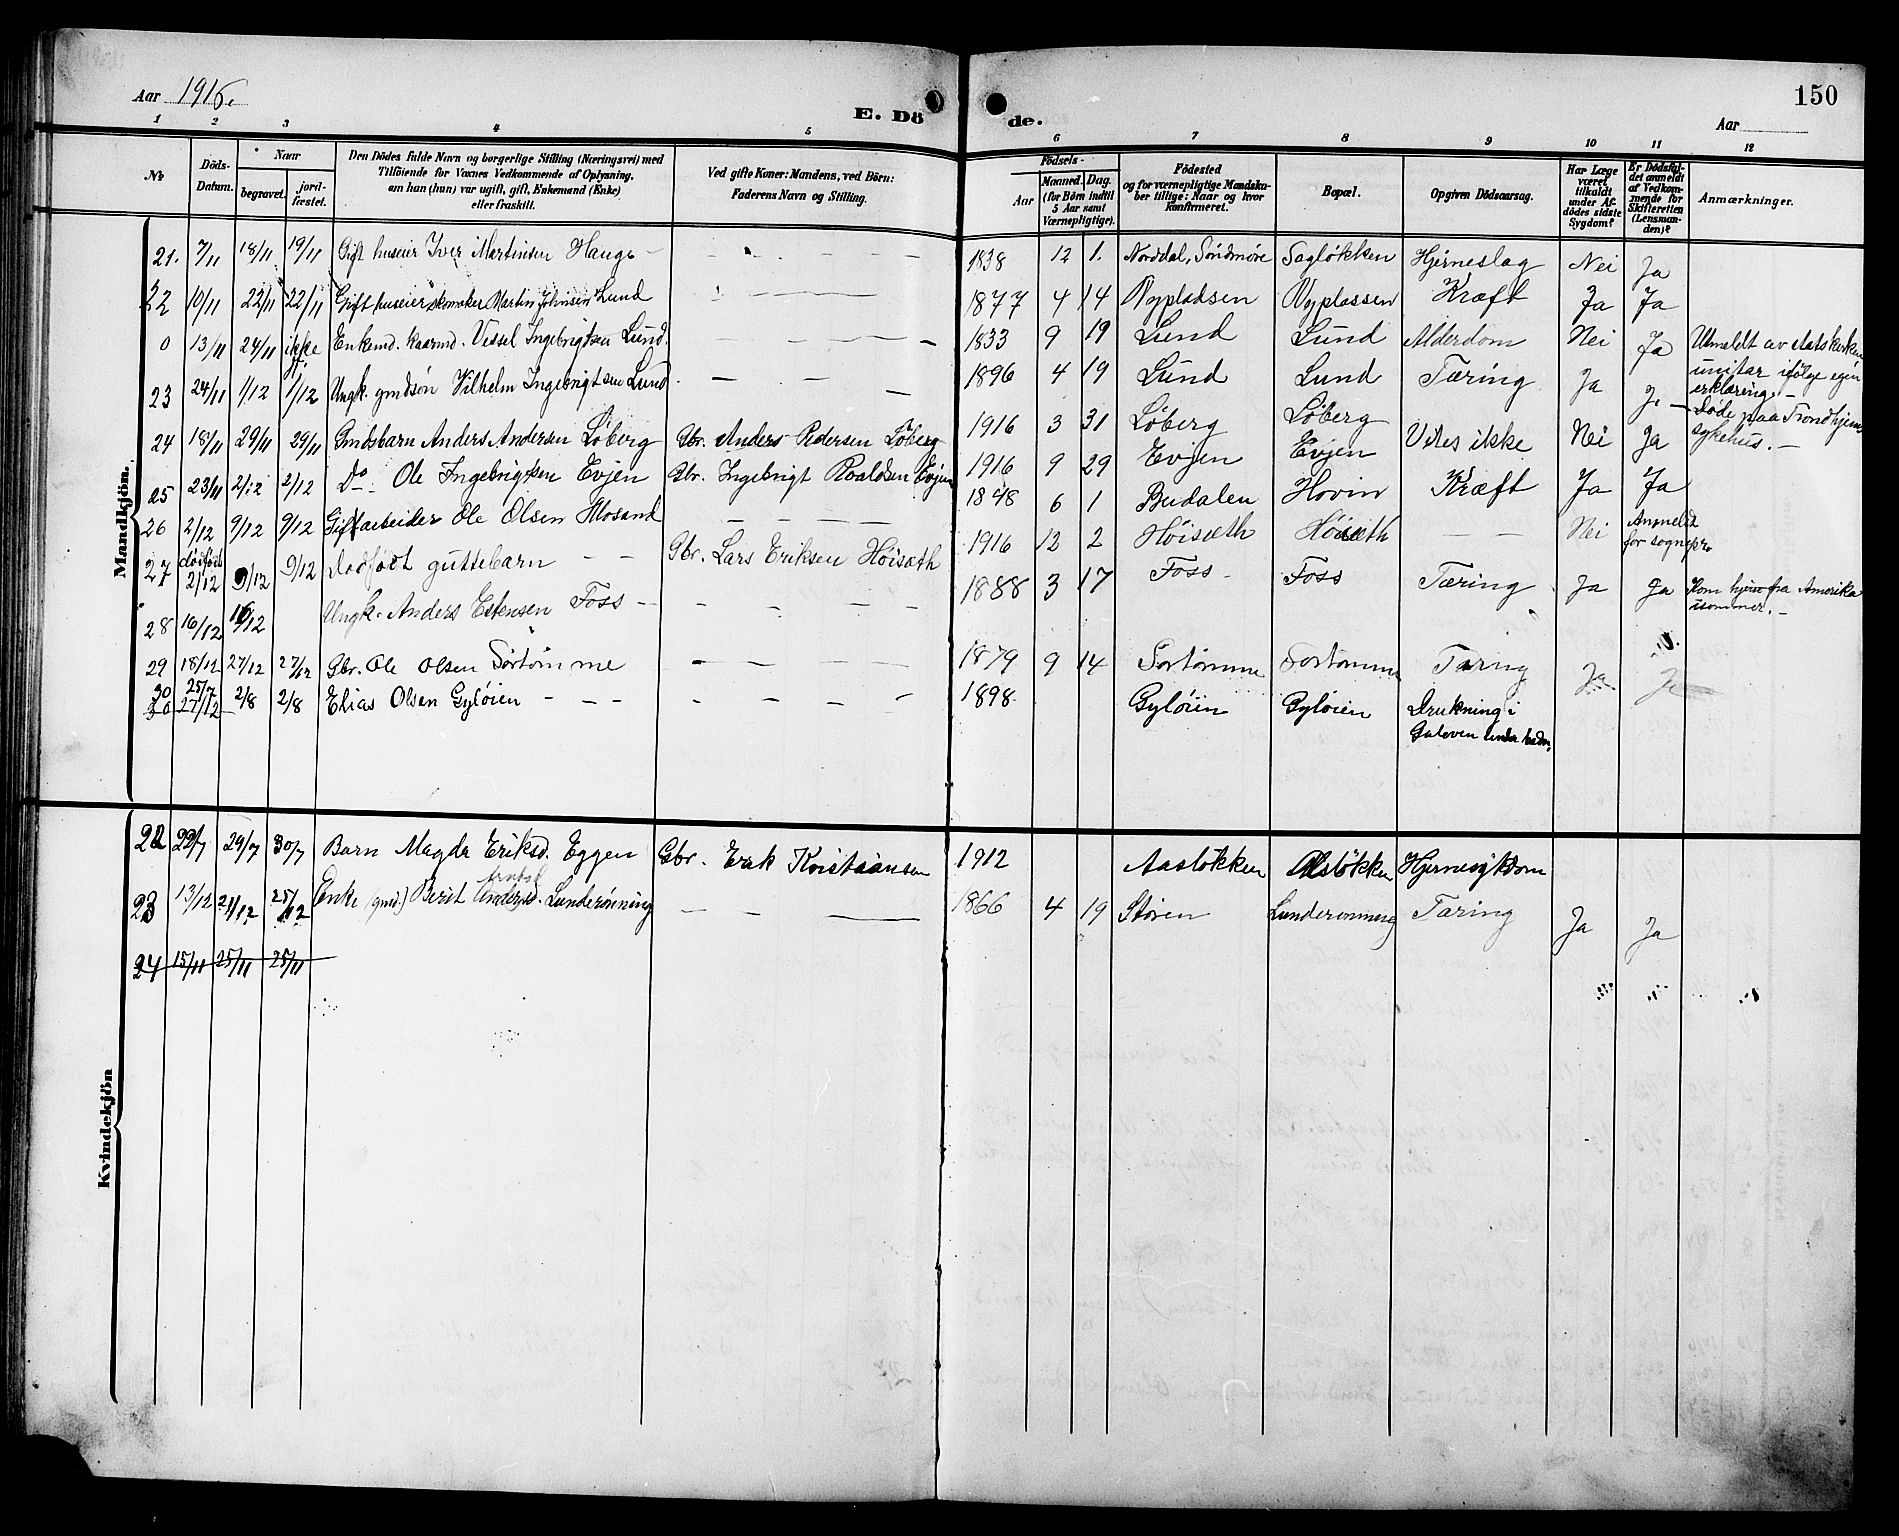 Aar 1916.
E. Dö de.
150
Aar
1 2 3 4 5 6 7 8 9 10 11 12
No
Döds-Datum.
Naar
begravet.
jordfæstet.
Den Dödes fulde Navn og borgerlige Stilling (Næringsvei) med Tilföiende for Voxnes Vedkommende af Oplysning, om han (hun) var ugift, gift, Enkemand (Enke) eller fraskilt.
Ved gifte Koner: Mandens, ved Börn: Faderens Navn og Stilling.
Födsels-
Aar
Maaned. Dag.
(for Börn indtil 5 Aar samt Værnepligtige).
Födested og for værnepligtige Mandskaber tillige: Naar og hvor konfirmeret.
Bopæl.
Opgiven Dödsaarsag.
Har Læge været tilkaldt under Afdödes sidste Sygdom?
Er Dödsfaldet anmeldt af Vedkommende for Skifteretten (Lensmanden)?
Anmærkninger.
Mandkjön.
21. 7/11 18/11 19/11 Gift huseier Iver Martinsen Hauge — 1838 12 1. Norddal, Söndmöre Sagløkken Hjerneslag Nei Ja
22 10/11 22/11 22/11 Gift huseier skomaker Martin Johnsen Lund 1877 4 14 Nypladsen Nyplassen Kræft Ja Ja
0 13/11 24/11 ikke jf. Enkemd. kaarmd. Vessel Ingebrigtsen Lund. 1833 9 19 Lund Lund Alderdom Nei Ja Utmeldt av statskirken unitar ifölge egen erklæring. —
23 24/11 1/12 1/12 Ungk. gmdsön Vilhelm Ingebrigtsen Lund. 1896 4 19 Lund Lund Tæring Ja Ja — Døde paa Trondhjems sykehus. —
24 18/11 29/11 29/11 Gmdsbarn Anders Andersen Løberg Gbr. Anders Pedersen Löberg 1916 3 31 Løberg Løberg Vites ikke Nei Ja
25 23/11 2/12 2/12 Do Ole Ingebrigtsen Evjen Gbr. Ingebrigt Roaldsen Evjen 1916 9 29 Evjen Evjen Kræft Ja Ja
26 2/12 9/12 9/12 Gift arbeider Ole Olsen Mosand 1848 6 1 Budalen Hovin
27 dødfødt 2/12 9/12 9/12 Dødfødt guttebarn — — Gbr. Lars Eriksen Höisæth 1916 12 2 Höisæth Höisæth — — Nei Anmeldt for sognepr.
28 16/12 16/12 Ungk. Anders Estensen Foss — 1888 3 17 Foss Foss Tæring Ja Ja Kom hjem fra Amerika isommer. —
29 18/12 27/12 27/12 Gbr. Ole Olsen Sörtömme 1879 9 14 Sortömme Sortömme Tæring Ja Ja
30 25/7
30 27/12 2/8 2/8 Elias Olsen Gylöien — — — 1898. Gylöien Gylöien Drukning i Gulöven under badn.
Kvindekjön
22 22/7 29/7 30/7 Barn Magda Eriksd. Eggen Gbr. Erik Kristiansen 1912 Aasløkken Aasløkken Hjernesykdom
23 13/12 21/12 25/12 Enke (gmd.) Berit Andersd. Lunderönning 1866 4 19 Stören Lunderønning Tæring Ja Ja
24 15/11 25/11 25/11